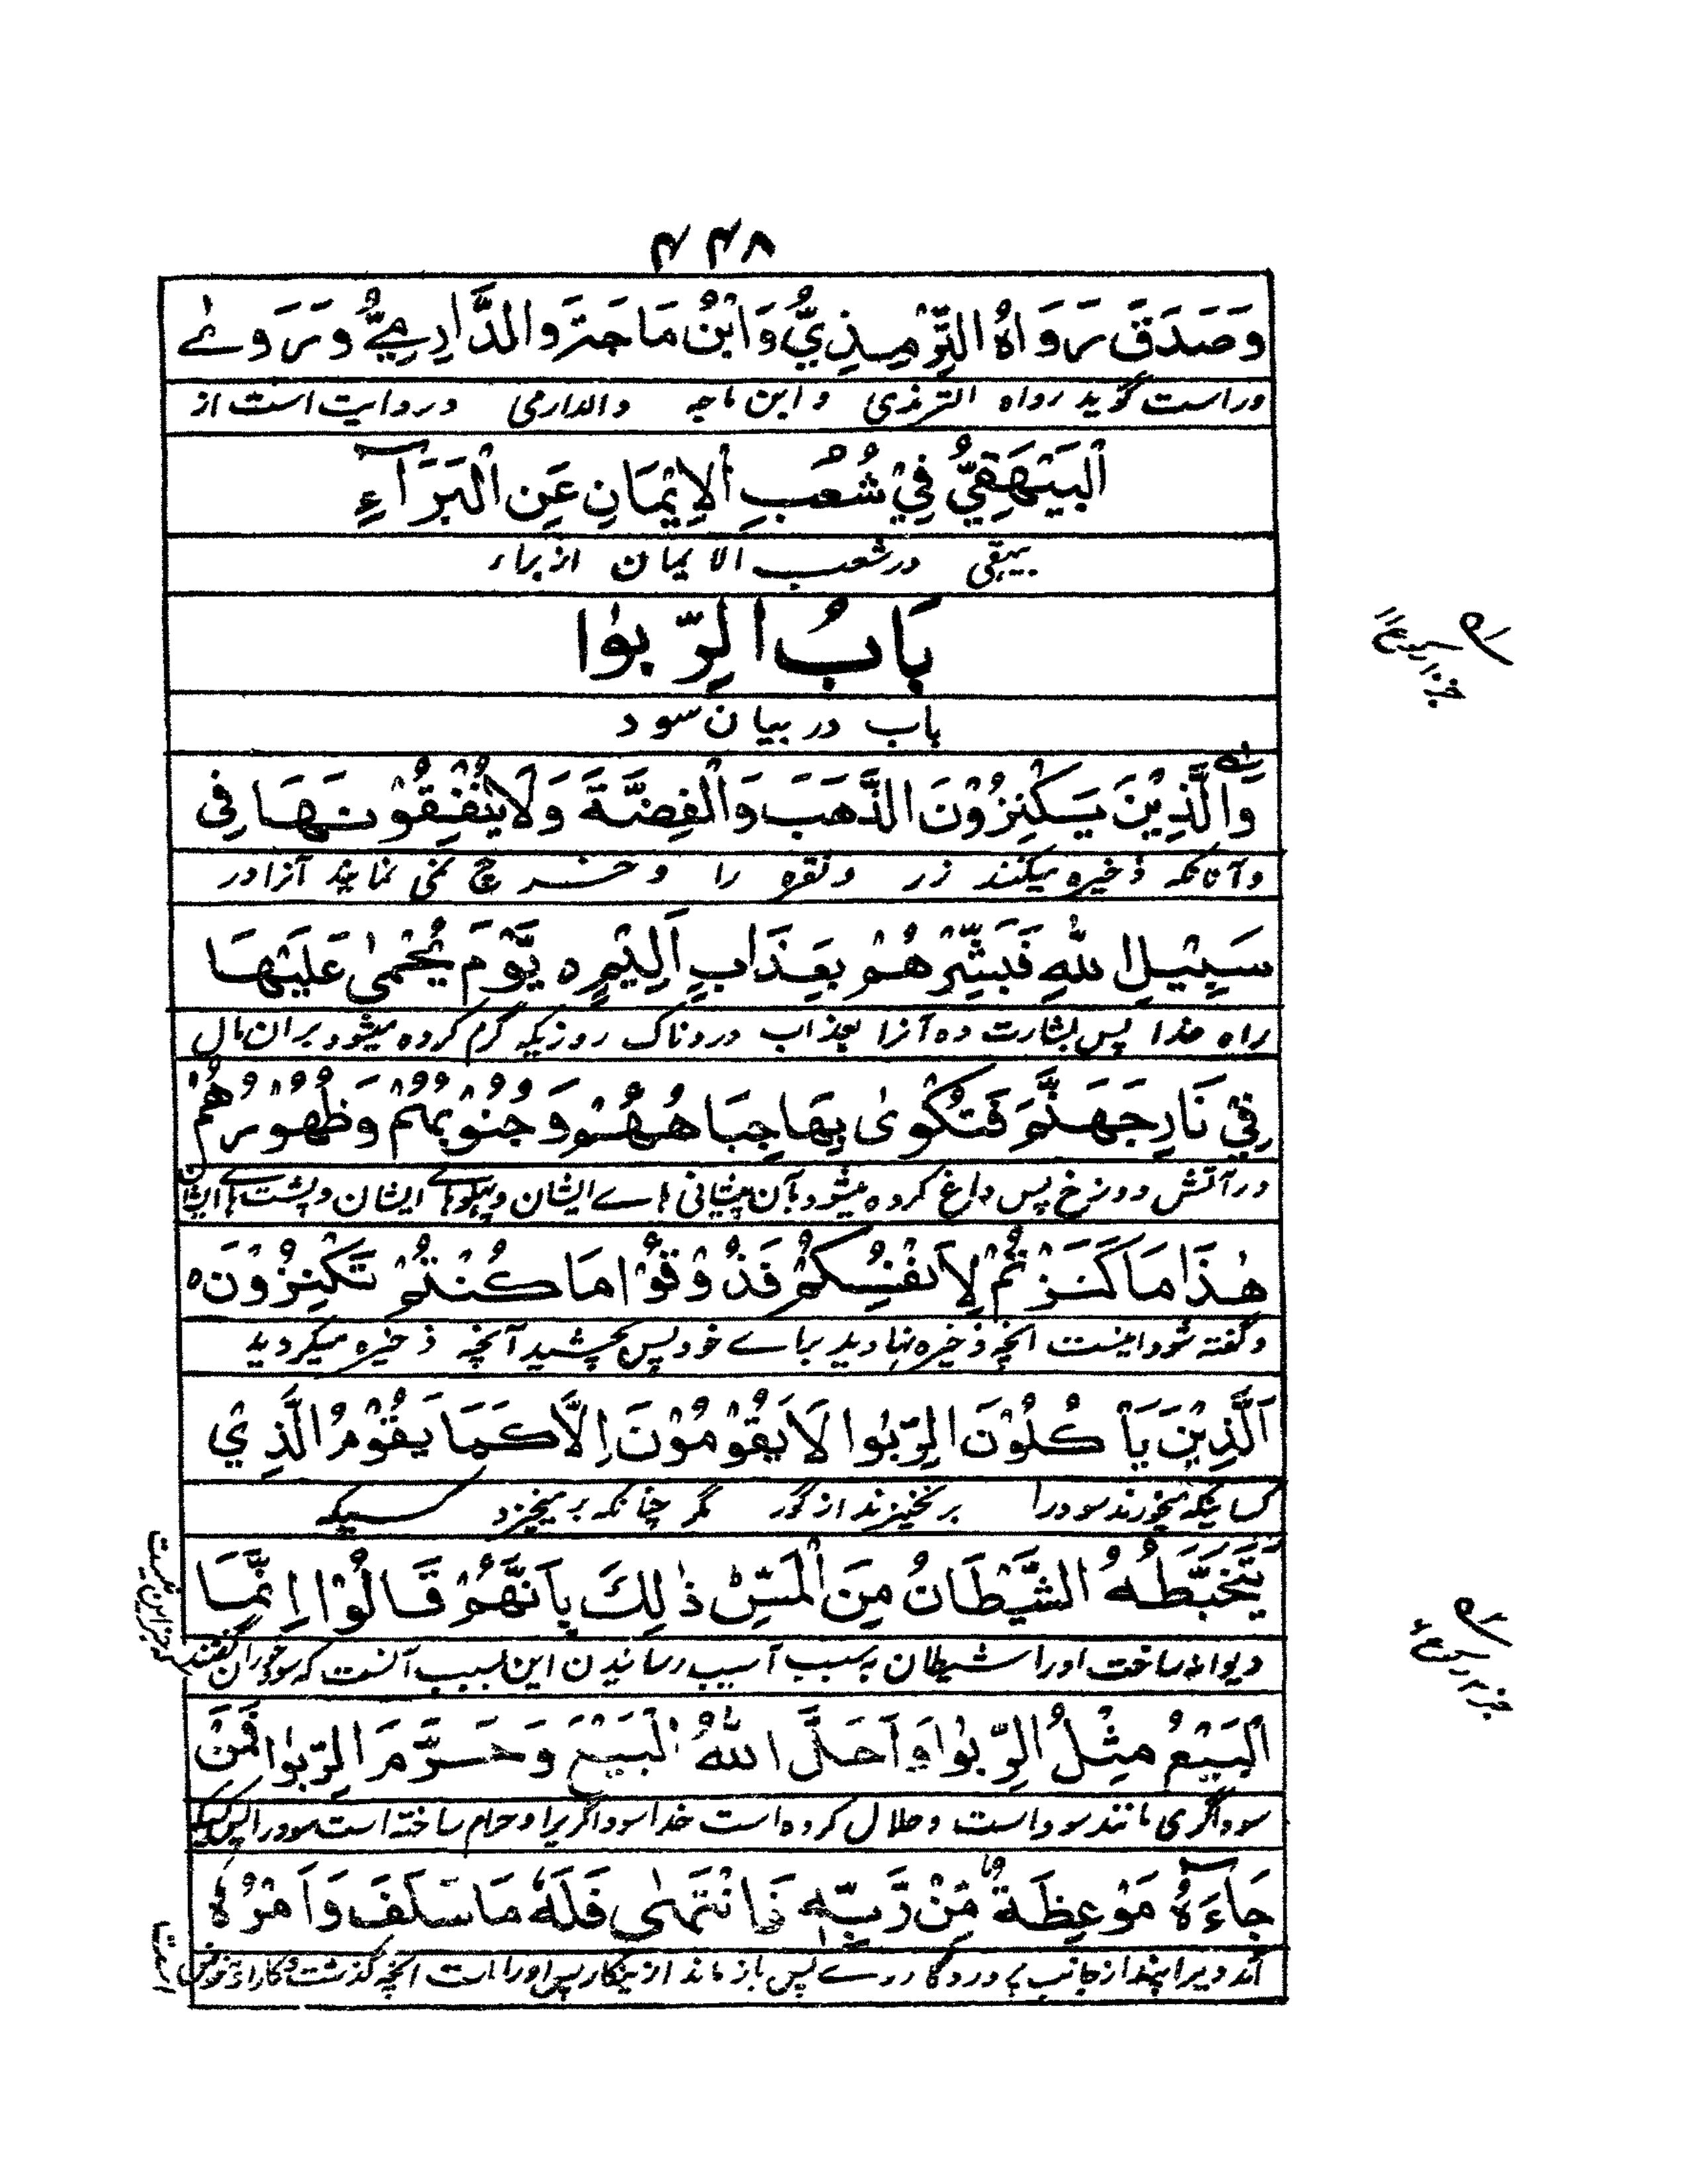 ۴۴۸
وَصَدَقَ رَوَاهُ التِّرْمِذِيُّ وَابْنُ مَاجَةَ وَالدَّارِمِيُّ وَرَوَے
وراست گوید رواه الترمذی وابن ماجه والدارمی و روایت است از
الْبَيْهَقِيُّ فِيْ شُعَبِ الْاِيْمَانِ عَنِ الْبَرَآءِ
بیهقی در شعب الایمان از براء
بَابُ الرِّبٰوا
باب در بیان سود
وَالَّذِيْنَ يَكْنِزُوْنَ الذَّهَبَ وَالْفِضَّةَ وَلَا يُنْفِقُوْنَهَا فِى
وآنانکه ذخیره میکنند زر ونقره را وخرچ نمی نمایند آنرا در
سَبِيْلِ اللّٰهِ فَبَشِّرْهُمْ بِعَذَابٍ اَلِيْمٍ ہ يَّوْمَ يُحْمٰى عَلَيْهَا
راه خدا پس بشارت ده آنرا بعذاب دردناک روزیکه گرم کرده میشود بران مال
فِيْ نَارِ جَهَنَّمَ فَتُكْوٰى بِهَا جِبَاهُهُمْ وَجُنُوْبُهُمْ وَظُهُوْرُهُمْ
درآتش دوزخ پس داغ کرده میشود بآن پیشانی ہاے ایشان وپہلوہاے ایشان وپشت ہاے ایشان
هٰذَا مَا كَنَزْتُمْ لِاَنْفُسِكُمْ فَذُوْقُوْا مَا كُنْتُمْ تَكْنِزُوْنَ ہ
وگفته شود اینست انچه ذخیره نهادید براے خود پس بچشید آنچه ذخیره میکردید
اَلَّذِيْنَ يَأْكُلُوْنَ الرِّبٰوا لَا يَقُوْمُوْنَ اِلَّا كَمَا يَقُوْمُ الَّذِيْ
کسانیکه میخورند سود را برنخیزند از گور مگر چنانکه برمیخیزد کسیکه
يَتَخَبَّطُهُ الشَّيْطَانُ مِنَ الْمَسِّ ذٰلِكَ بِاَنَّهُمْ قَالُوْا اِنَّمَا
دیوانه ساخت اورا شیطان بہ سبب آسیب رسانیدن این بسبب آنست که سودخوران گفتند که جزاین نیست
الْبَيْعُ مِثْلُ الرِّبٰوا وَاَحَلَّ اللّٰهُ الْبَيْعَ وَحَرَّمَ الرِّبٰوا فَمَنْ
سوداگری مانند سود است وحلال کرده است خدا سوداگریرا وحرام ساخته است سود را پس کسیکه
جَآءَهٗ مَوْعِظَةٌ مِّنْ رَّبِّهٖ فَانْتَهٰى فَلَهٗ مَا سَلَفَ وَاَمْرُهٗ
آمد ویرا پند از جانب پروردگار وے پس باز ماند ازینکار پس اورا است انچه گذشت وکار او